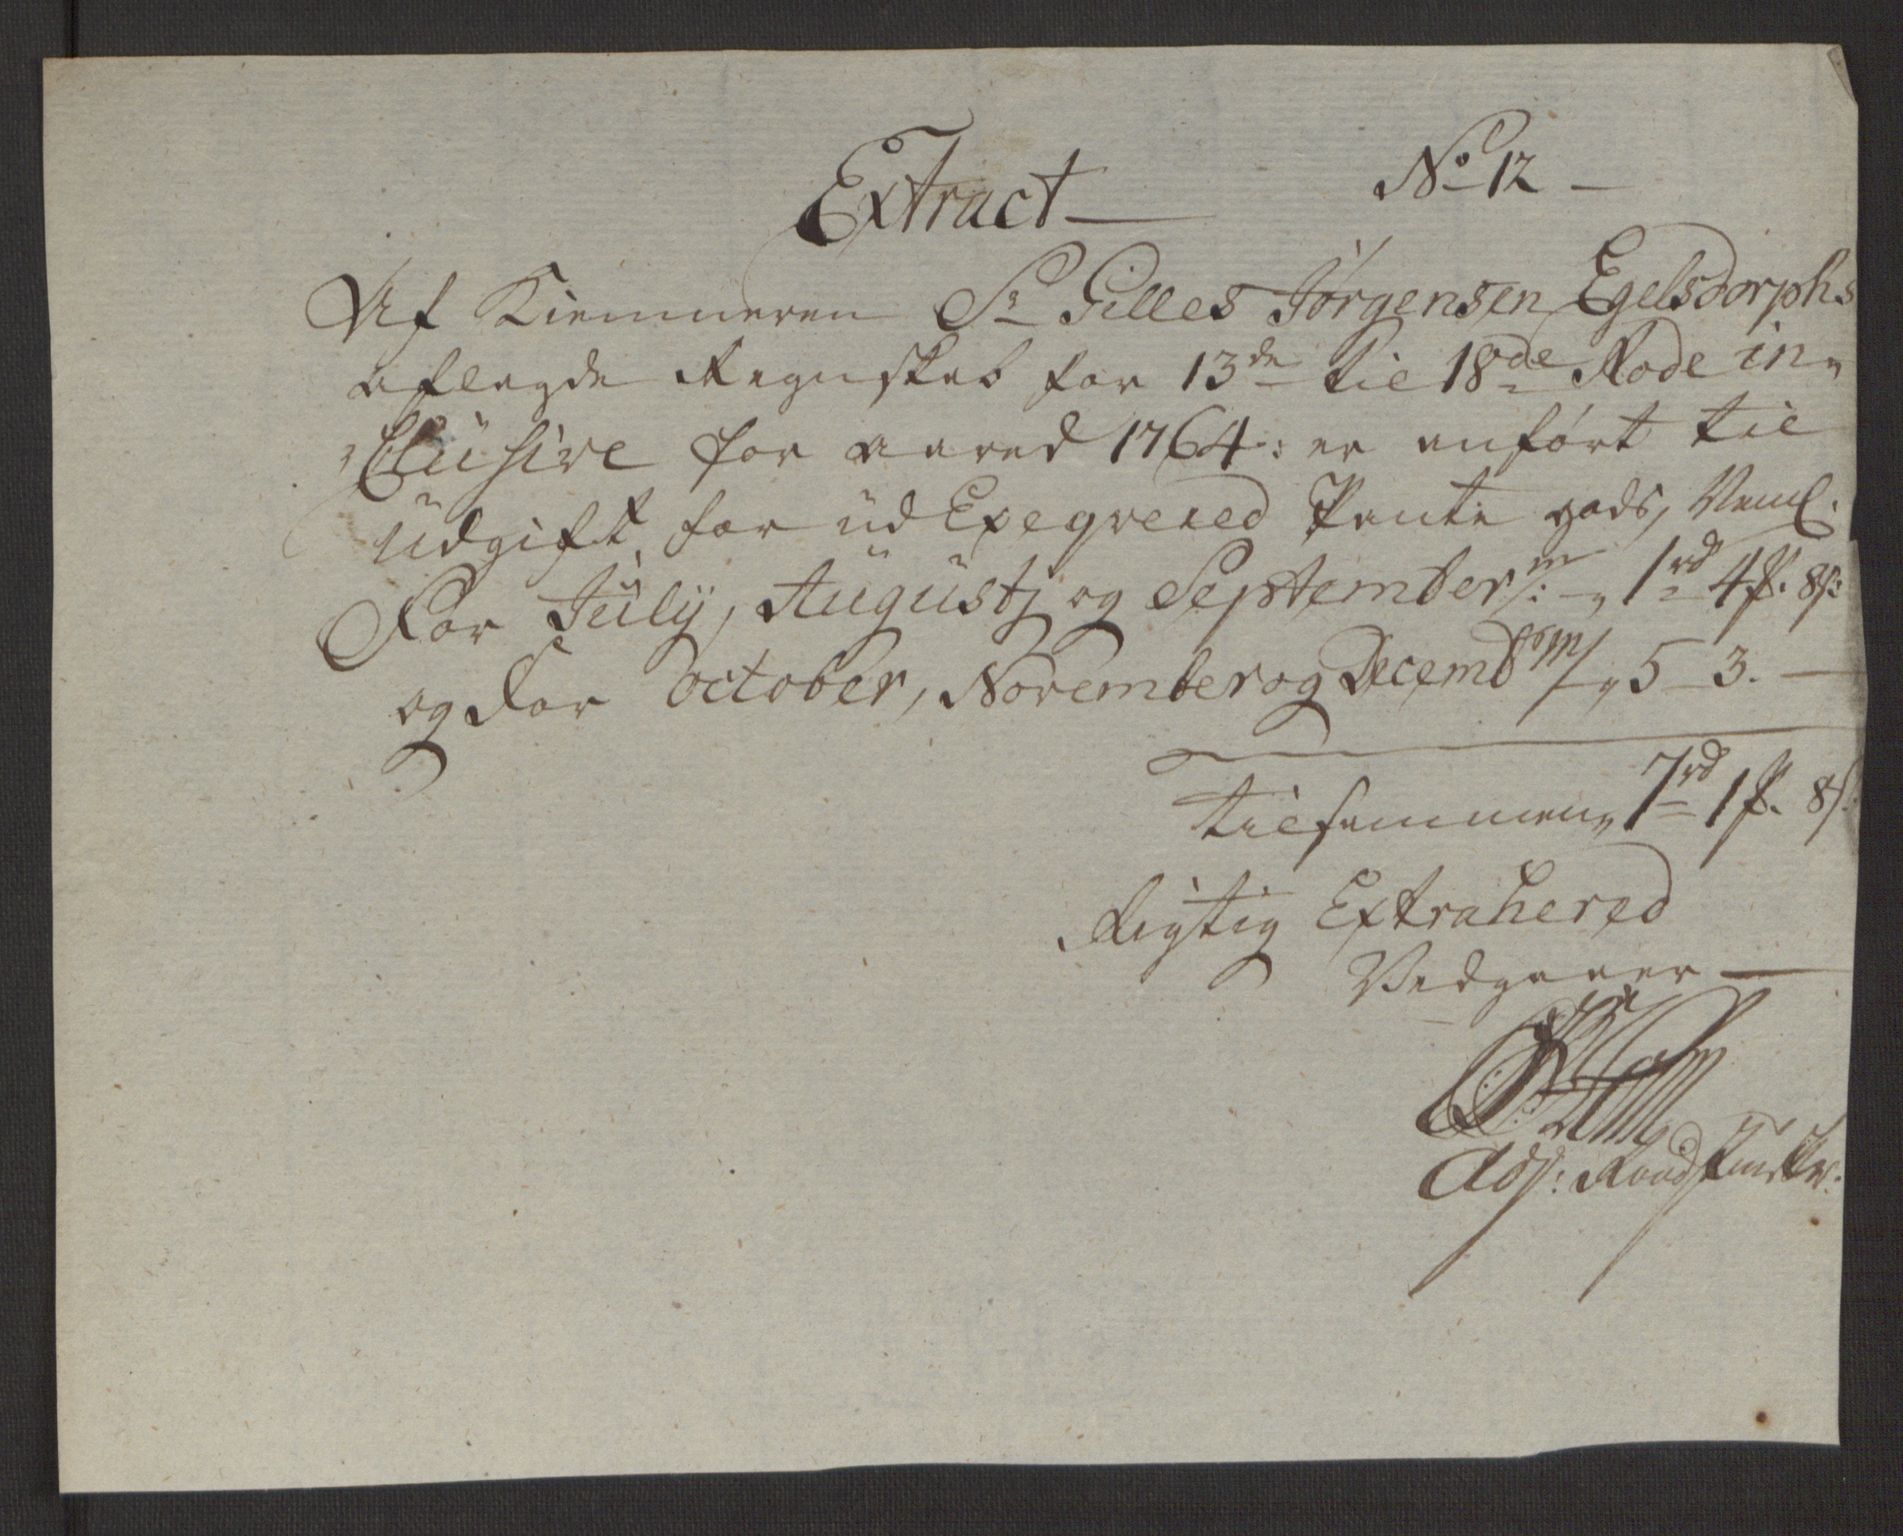 Extract No 12
Af Kiemneren Sr Gilles Jørgensen Egelsdorphs
aflegde Regnskab for 13de til 18de Rode in-
clusive for aared 1764: er anført til
Udgift for ud Exeqvered Pante gods, Neml.
For July, Augustj og September m: - 1rd 4 8s:
og For October, November og Decembr m/ - 5 - 3. -
tilsammen 7rd 1 8s.
Rigtig Extrahered
Vedgaaer
Adj: Raadstue